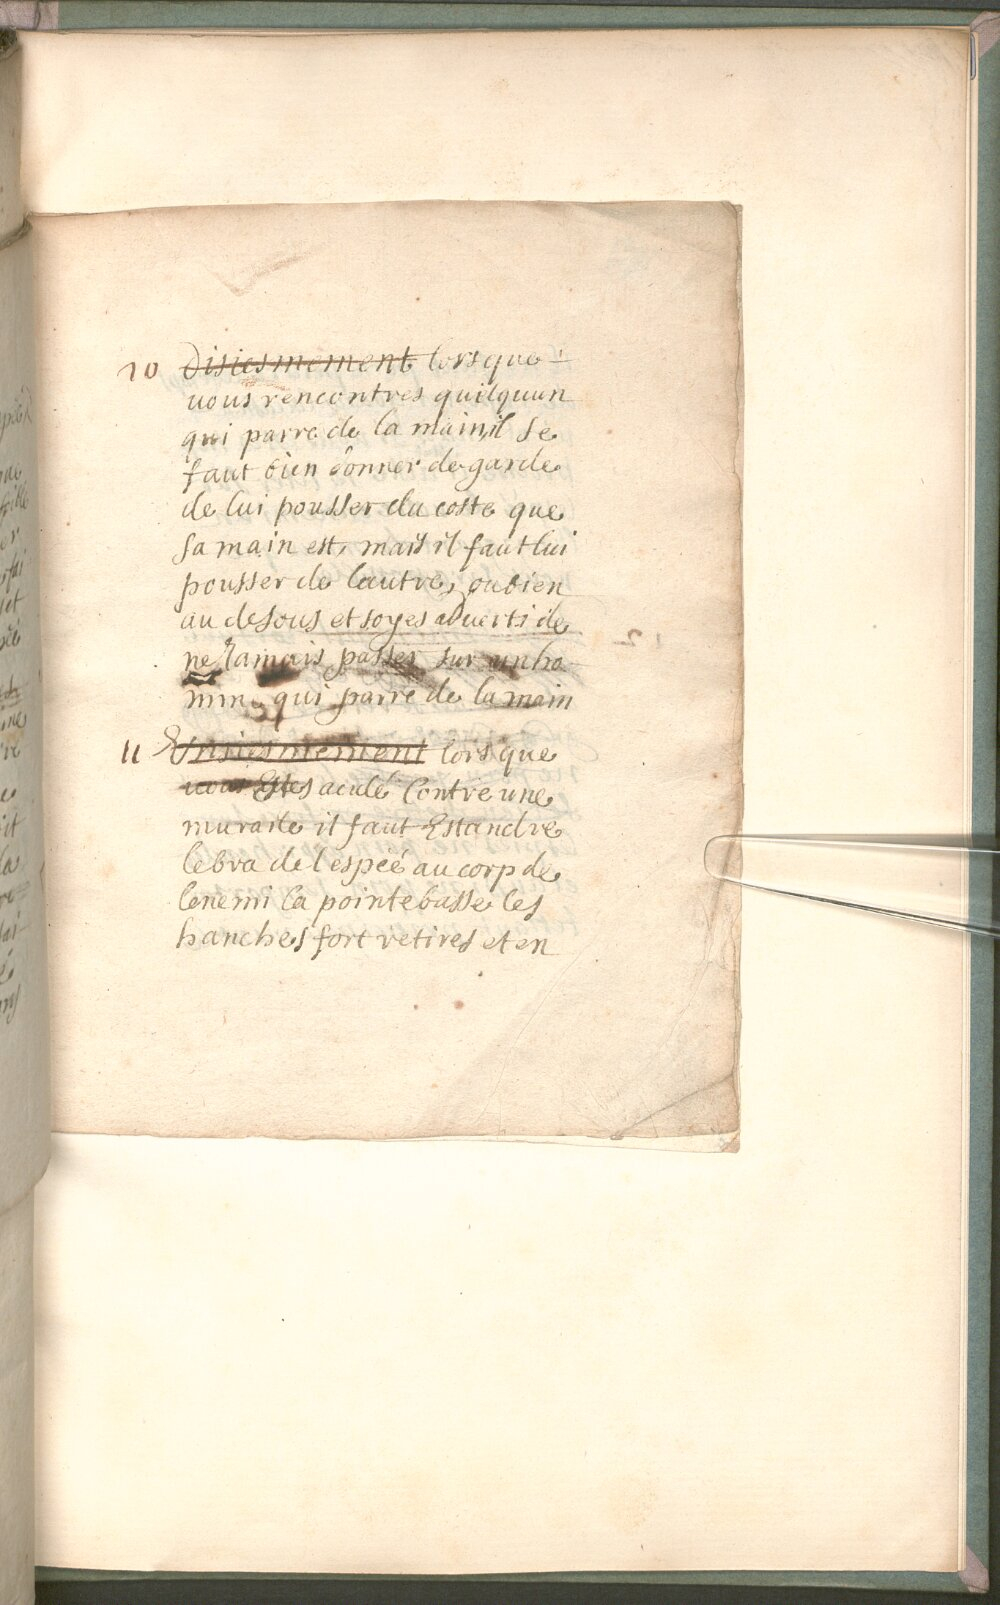 10 Disiesmement lorsque
vous rencontres quelquun
qui parre de la main il se
faut bien donner de garde
de lui pousser du coste que
sa main est, mais il faut lui
pousser de lautre, ou bien
au desous et soyes advertis de
ne Jamais passer sur un ho
mme qui parre de la main
11 Onsiesmement lorsque
vous Estes aculé Contre une
muraile il faut Estandre
le bra de l'espeé au corp de
lenemi la pointe basse les
hanches fort retires et en